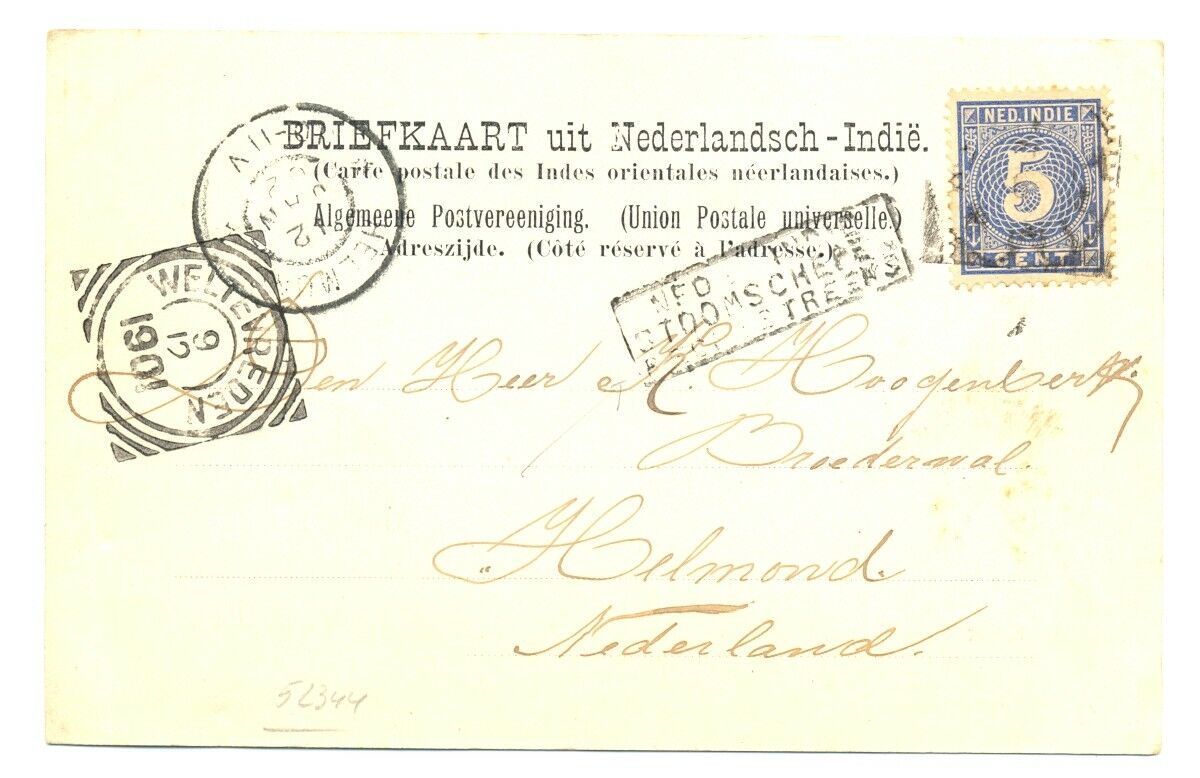 BRIEFKAART uit Nederlandsch-Indië.
(Carte postale des Indes orientales néerlandaises.)
Algemeene Postvereeniging. (Union Postale universelle.)
Adreszijde. (Côté réservé à l'adresse.)
NED. INDIE
5
CENT
NED
STOOMSCHEPEN
WELTEVREDEN
9
12
1901
Den Heer
Hoogenberk
Broederwal.
"Helmond.
Nederland.
52344